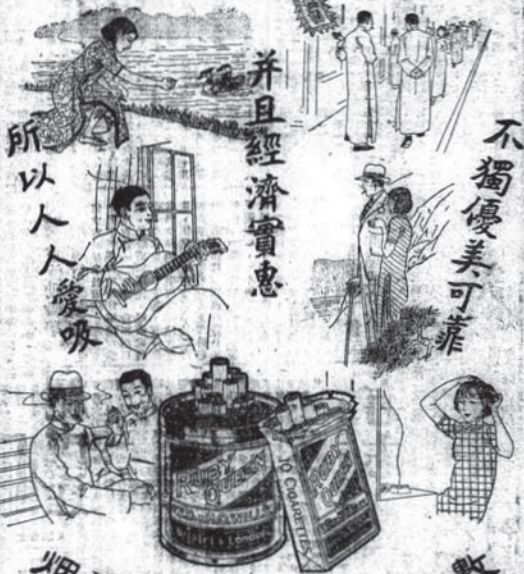 不獨優美可靠
并且經濟實惠
所以人人愛吸
RUBY
QUEEN
WILLS
Bristol & London
10 CIGARETTES
RUBY
QUEEN